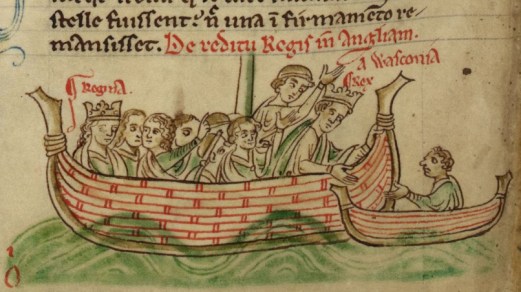 stelle fuissent: n̄ una ī firmamēto re
mansisset. De reditu Regis in Angliam.
a Wasconia
Regina.
Rex